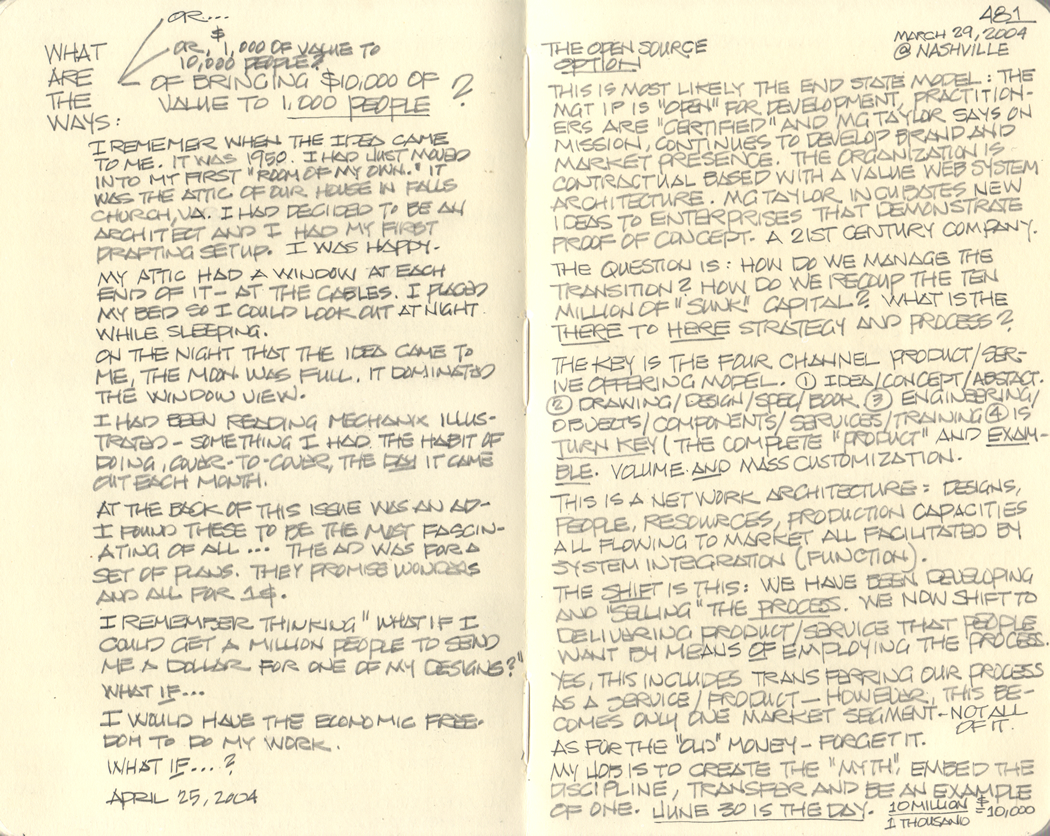 OR...
$
OR, 1,000 OF VALUE TO
10,000 PEOPLE?
WHAT
ARE
THE
WAYS:
OF BRINGING $10,000 OF
VALUE TO 1,000 PEOPLE ?
I REMEMBER WHEN THE IDEA CAME
TO ME. IT WAS 1950. I HAD JUST MOVED
INTO MY FIRST "ROOM OF MY OWN." IT
WAS THE ATTIC OF OUR HOUSE IN FALLS
CHURCH, VA. I HAD DECIDED TO BE AN
ARCHITECT AND I HAD MY FIRST
DRAFTING SETUP. I WAS HAPPY.
MY ATTIC HAD A WINDOW AT EACH
END OF IT - AT THE GABLES. I PLACED
MY BED SO I COULD LOOK OUT AT NIGHT
WHILE SLEEPING.
ON THE NIGHT THAT THE IDEA CAME TO
ME, THE MOON WAS FULL. IT DOMINATED
THE WINDOW VIEW.
I HAD BEEN READING MECHANIX ILLUS-
TRATED - SOMETHING I HAD THE HABIT OF
DOING, COVER-TO-COVER, THE DAY IT CAME
OUT EACH MONTH.
AT THE BACK OF THIS ISSUE WAS AN AD -
I FOUND THESE TO BE THE MOST FASCIN-
ATING OF ALL ... THE AD WAS FOR A
SET OF PLANS. THEY PROMISE WONDERS
AND ALL FOR 1$.
I REMEMBER THINKING "WHAT IF I
COULD GET A MILLION PEOPLE TO SEND
ME A DOLLAR FOR ONE OF MY DESIGNS?"
WHAT IF...
I WOULD HAVE THE ECONOMIC FREE-
DOM TO DO MY WORK.
WHAT IF...?
APRIL 25, 2004
481
MARCH 29, 2004
@ NASHVILLE
THE OPEN SOURCE
OPTION
THIS IS MOST LIKELY THE END STATE MODEL: THE
MGT IP IS "OPEN" FOR DEVELOPMENT, PRACTITION-
ERS ARE "CERTIFIED" AND MG TAYLOR SAYS ON
MISSION, CONTINUES TO DEVELOP BRAND AND
MARKET PRESENCE. THE ORGANIZATION IS
CONTRACTUAL BASED WITH A VALUE WEB SYSTEM
ARCHITECTURE. MG TAYLOR INCUBATES NEW
IDEAS TO ENTERPRISES THAT DEMONSTRATE
PROOF OF CONCEPT. A 21ST CENTURY COMPANY.
THE QUESTION IS: HOW DO WE MANAGE THE
TRANSITION? HOW DO WE RECOUP THE TEN
MILLION OF "SUNK" CAPITAL? WHAT IS THE
THERE TO HERE STRATEGY AND PROCESS?
THE KEY IS THE FOUR CHANNEL PRODUCT/SER-
IVE OFFERING MODEL. ① IDEA/CONCEPT/ABSTACT.
② DRAWING/DESIGN/SPEC/BOOK. ③ ENGINEERING/
OBJECTS/COMPONENTS/SERVICES/TRAINING ④ IS
TURN KEY (THE COMPLETE "PRODUCT" AND EXAM-
BLE. VOLUME AND MASS CUSTOMIZATION.
THIS IS A NETWORK ARCHITECTURE: DESIGNS,
PEOPLE, RESOURCES, PRODUCTION CAPACITIES
ALL FLOWING TO MARKET ALL FACILITATED BY
SYSTEM INTEGRATION (FUNCTION).
THE SHIFT IS THIS: WE HAVE BEEN DEVELOPING
AND "SELLING" THE PROCESS. WE NOW SHIFT TO
DELIVARING PRODUCT/SERVICE THAT PEOPLE
WANT BY MEANS OF EMPLOYING THE PROCESS.
YES, THIS INCLUDES TRANSFERRING OUR PROCESS
AS A SERVICE/PRODUCT - HOWEVER, THIS BE-
COMES ONLY ONE MARKET SEGMENT - NOT ALL
OF IT.
AS FOR THE "OLD" MONEY - FORGET IT.
MY JOB IS TO CREATE THE "MYTH", EMBED THE
DISCIPLINE, TRANSFER AND BE AN EXAMPLE
OF ONE. JUNE 30 IS THE DAY. 10 MILLION $
1 THOUSAND = 10,000